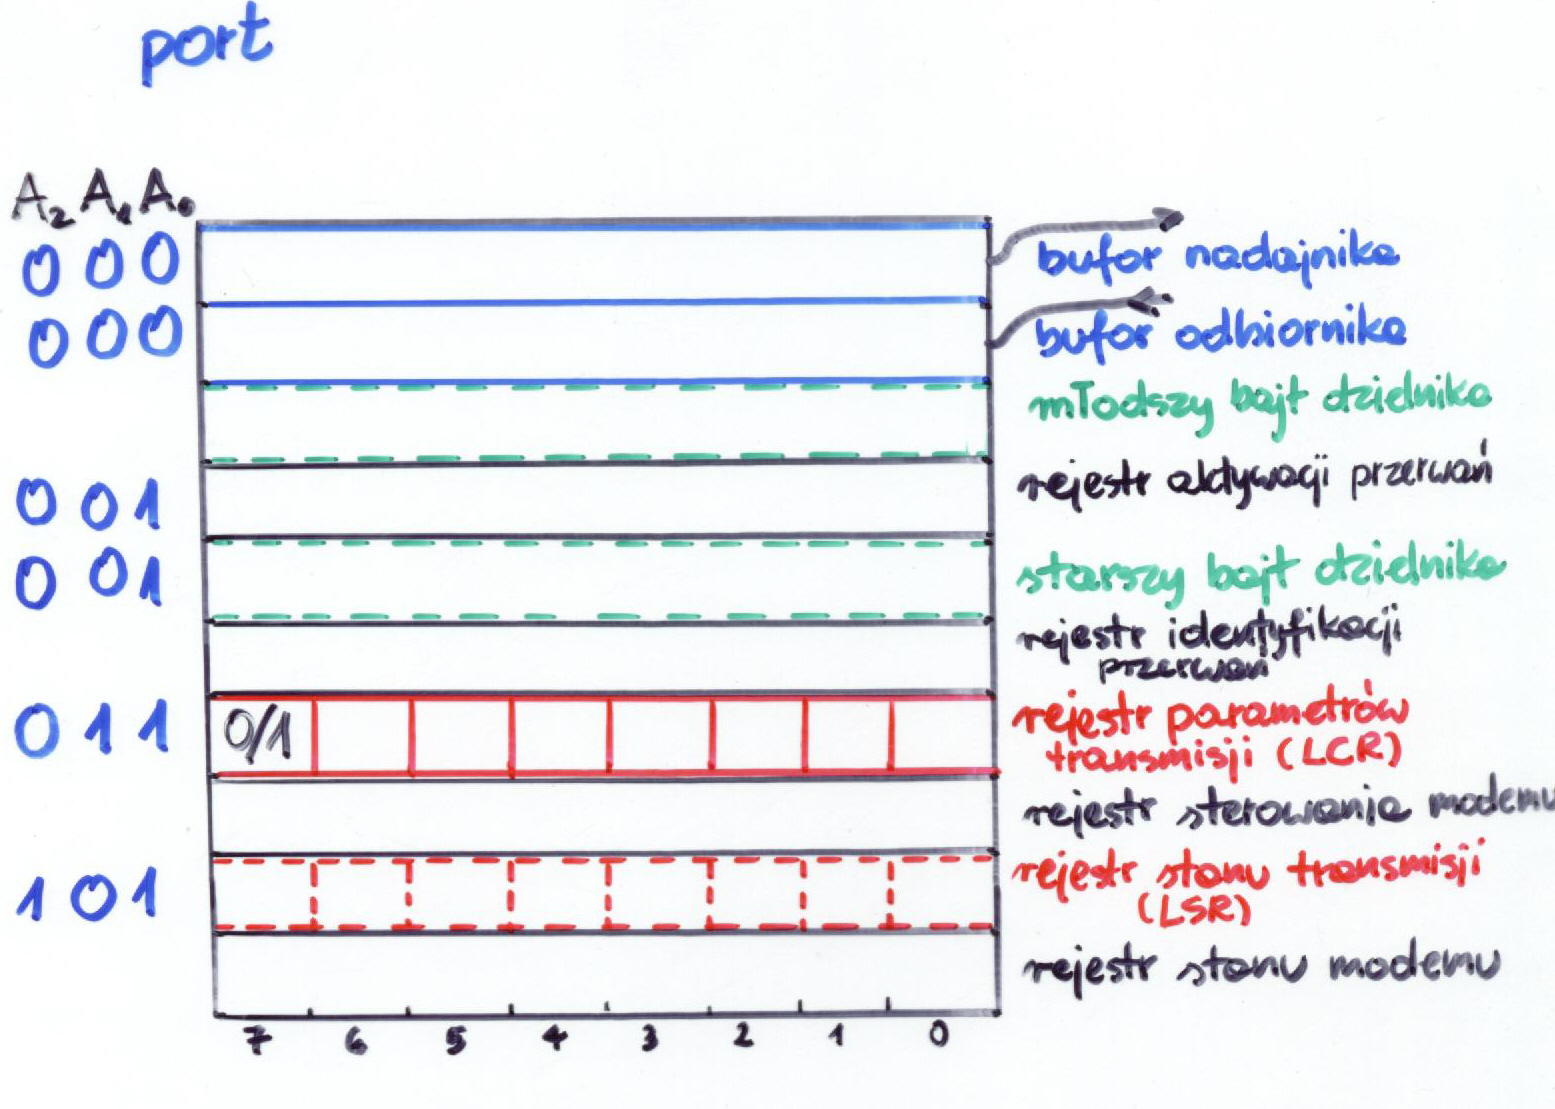 port
A₂ A₁ A₀
0 0 0 bufor nadajnika
0 0 0 bufor odbiornika
młodszy bajt dzielnika
0 0 1 rejestr aktywacji przerwań
0 0 1 starszy bajt dzielnika
rejestr identyfikacji
przerwań
0 1 1 0/1 rejestr parametrów
transmisji (LCR)
rejestr sterowania modemu
1 0 1 rejestr stanu transmisji
(LSR)
rejestr stanu modemu
7 6 5 4 3 2 1 0